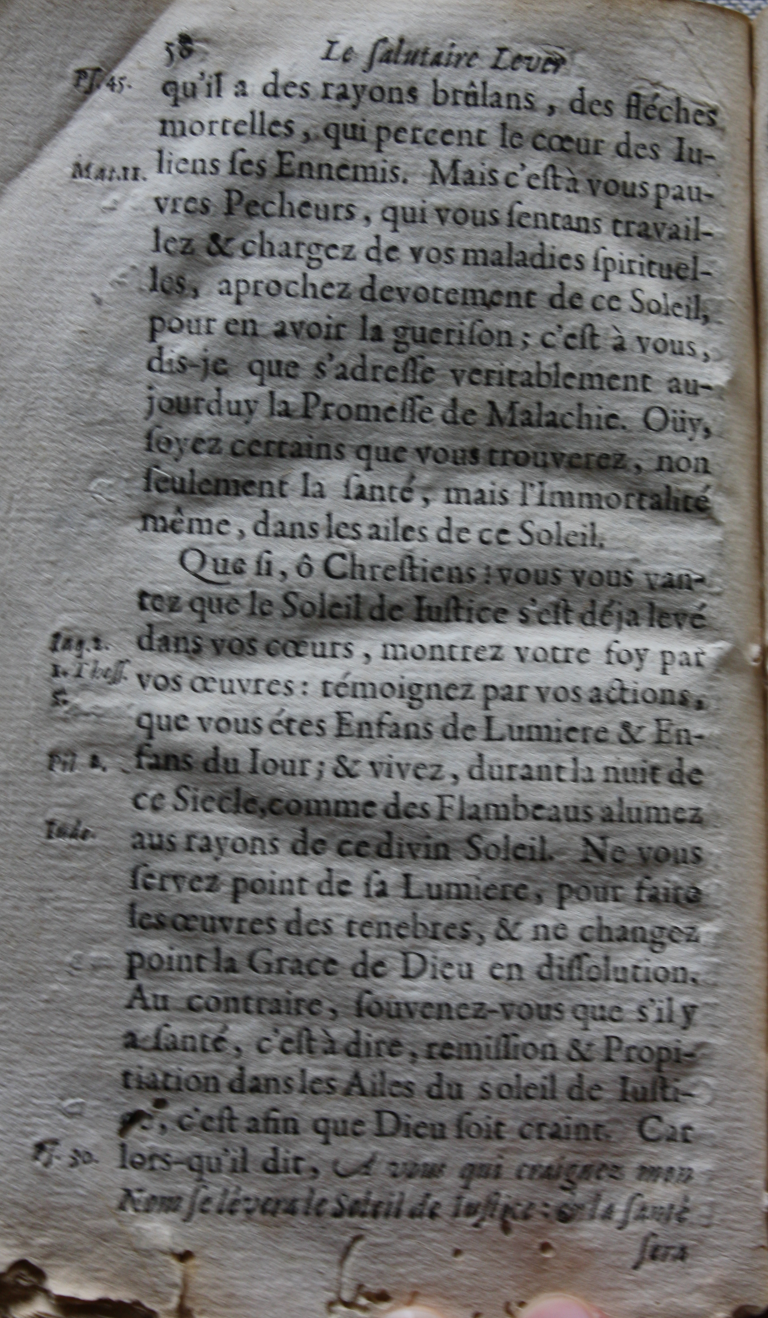 58 Le ſalutaire Lever
Pſ. 45. qu'il a des rayons brûlans, des fléches
mortelles, qui percent le cœur des Iu-
Mat. 11. liens ſes Ennemis. Mais c'eſt à vous pau-
vres Pecheurs, qui vous ſentans travail-
lez & chargez de vos maladies ſpirituel-
les, aprochez devotement de ce Soleil,
pour en avoir la gueriſon; c'eſt à vous,
dis-je que s'adreſſe veritablement au-
jourduy la Promeſſe de Malachie. Oüy,
ſoyez certains que vous trouverez, non
ſeulement la ſanté, mais l'Immortalité
même, dans les ailes de ce Soleil.
Que ſi, ô Chreſtiens! vous vous van-
tez que le Soleil de Iuſtice s'eſt déja levé
dans vos cœurs, montrez votre foy par
1. Theſſ. vos œuvres: témoignez par vos actions,
5. que vous étes Enfans de Lumiere & En-
fans du Iour; & vivez, durant la nuit de
ce Siecle, comme des Flambeaus alumez
Iude. aus rayons de ce divin Soleil. Ne vous
ſervez point de ſa Lumiere, pour faire
les œuvres des tenebres, & ne changez
point la Grace de Dieu en diſſolution.
Au contraire, ſouvenez-vous que s'il y
a ſanté, c'eſt à dire, remiſſion & Propi-
tiation dans les Ailes du soleil de Iuſti-
ce, c'eſt afin que Dieu ſoit craint. Car
lors-qu'il dit, A vous qui craignez mon
Nom ſe lèvera le Soleil de Iuſtice: & la ſanté
ſera